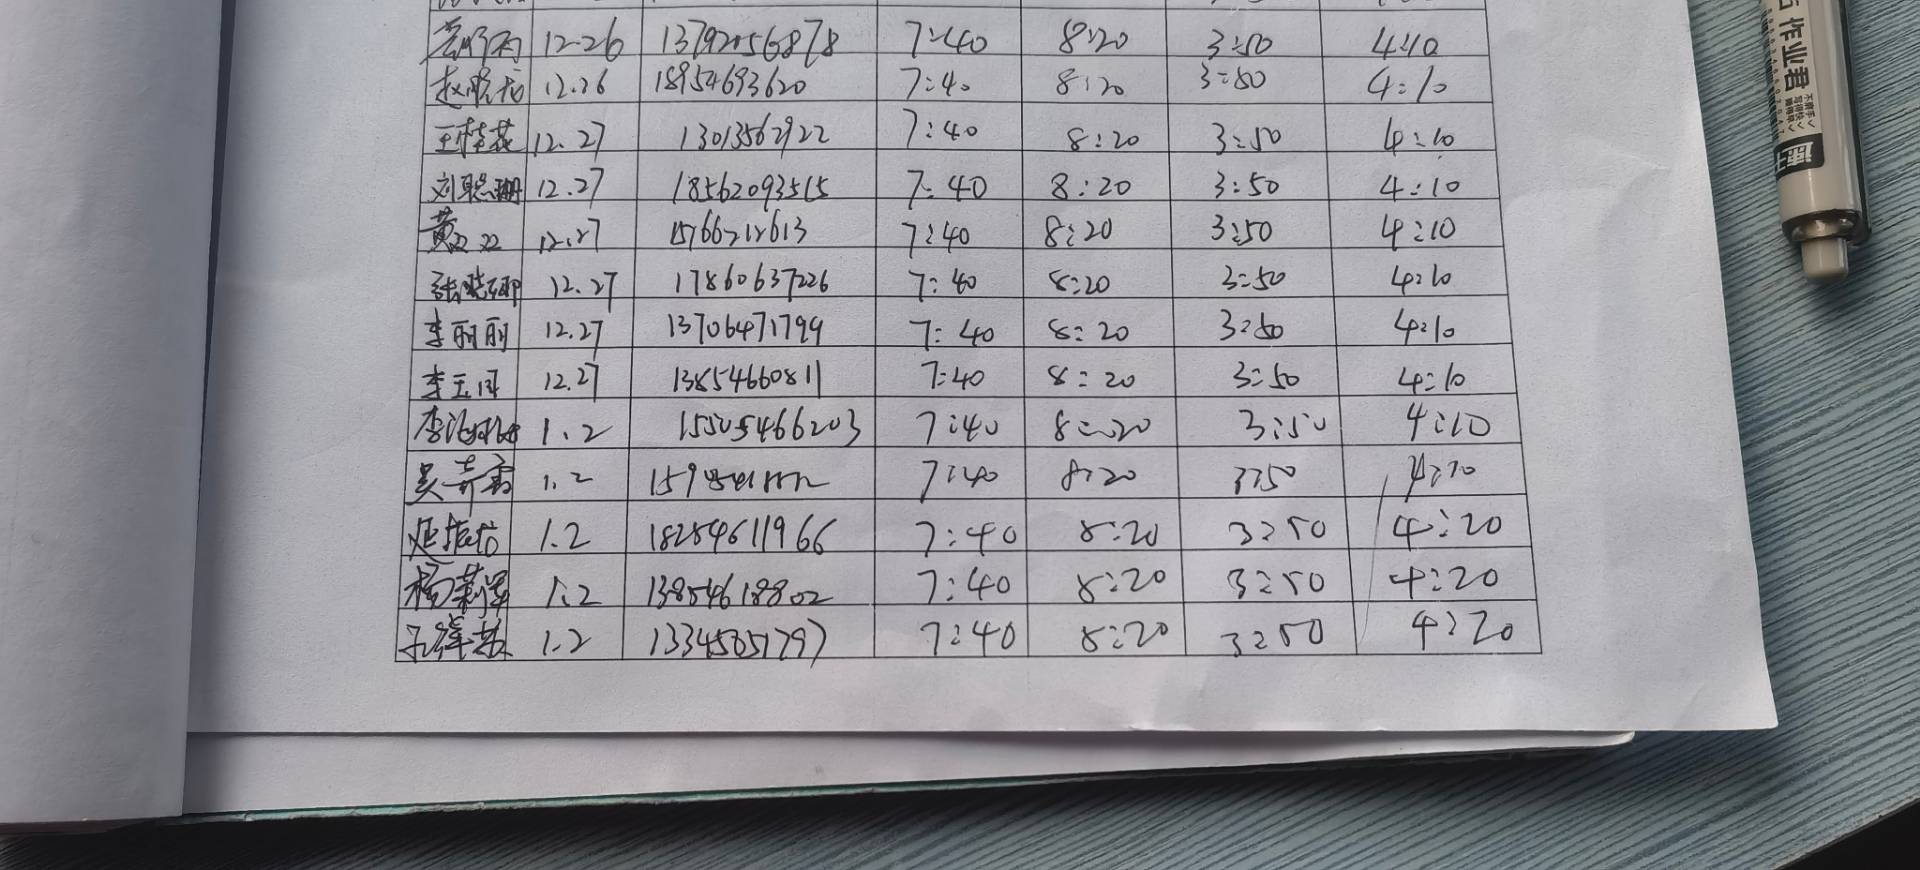 12.26 13792056878 7:40 8:20 3:50 4:10
赵晓龙 12.26 18954693620 7:40 8:20 3:50 4:10
王桂花 12.27 13013562922 7:40 8:20 3:50 4:10
刘聪珊 12.27 18562093515 7:40 8:20 3:50 4:10
黄双双 12.27 15766212613 7:40 8:20 3:50 4:10
张晓娜 12.27 17860637226 7:40 8:20 3:50 4:10
李丽丽 12.27 13706471799 7:40 8:20 3:50 4:10
李玉同 12.27 13854660811 7:40 8:20 3:50 4:10
李 1.2 15505466203 7:40 8:20 3:50 4:10
吴奇霞 1.2 7:40 8:20 3:50 4:10
延振信 1.2 18254611966 7:40 8:20 3:50 4:20
杨莉萍 1.2 13854618802 7:40 8:20 3:50 4:20
1.2 13345051797 7:40 8:20 3:50 4:20
作业君